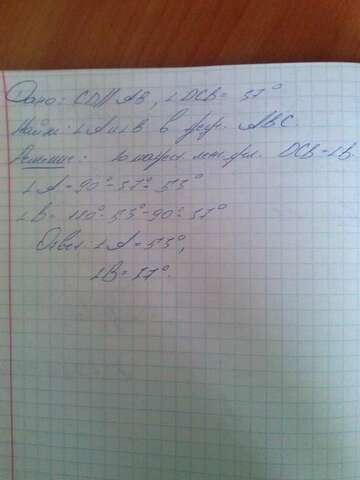 Дано: CD∥AB, ∠DCB = 37°
Найти: ∠A и ∠B в треуг. ABC.
Решение: DCB = ∠B.
∠A = 90° - 37° = 53°
∠B = 180° - 53° - 90° = 37°
Ответ: ∠A = 53°,
∠B = 37°.